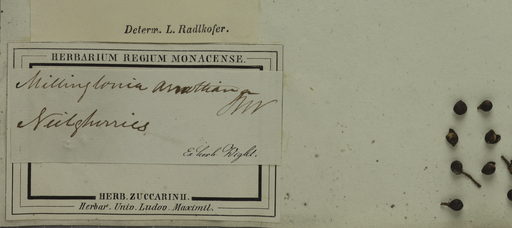 Determ. L. Radlkofer.
HERBARIUM REGIUM MONACENSE.
Millingtonia arnottiana
RW
Neilgherries
Ex herb. Wight.
HERB. ZUCCARINII.
Herbar. Univ. Ludov. Maximil.